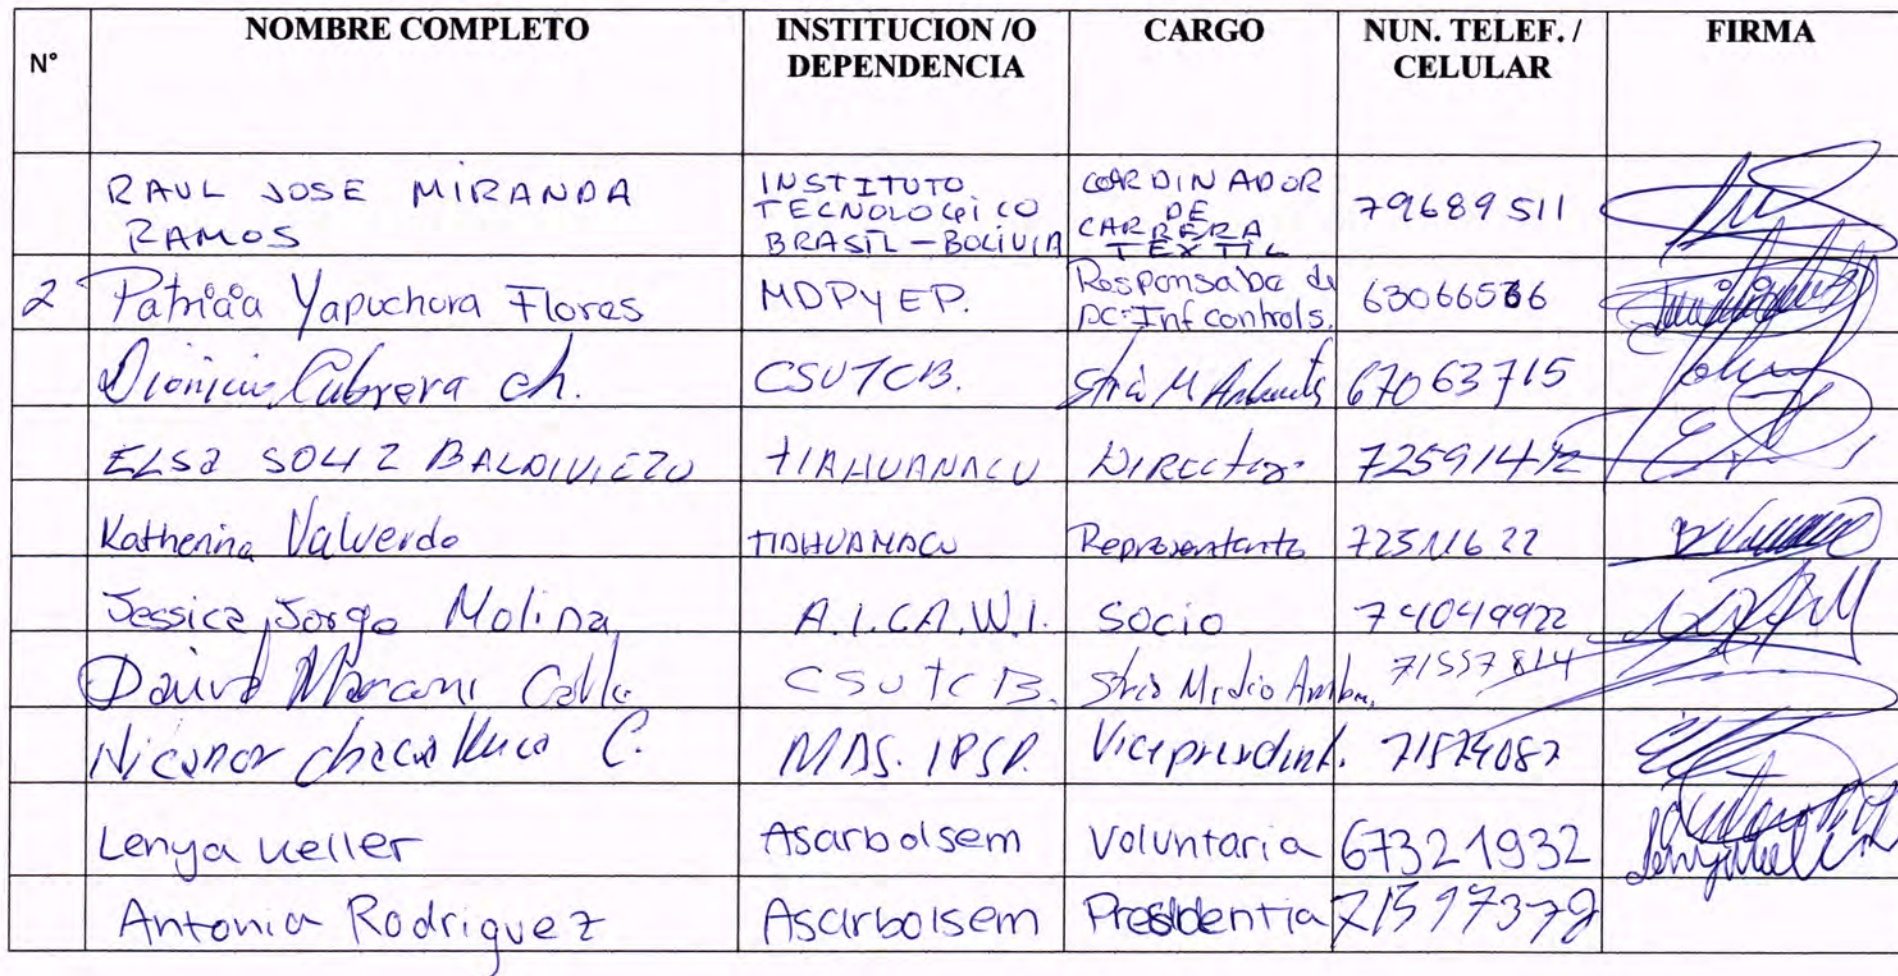 N° NOMBRE COMPLETO INSTITUCION /O DEPENDENCIA CARGO NUN. TELEF. / CELULAR FIRMA
RAUL JOSE MIRANDA RAMOS INSTITUTO TECNOLOGICO BRASIL - BOLIVIA COORDINADOR DE CARRERA TEXTIL 79689511
2 Patricia Yapuchura Flores MDPYEP. Responsabe de DC-Inf controls.
Dionicio Cabrera ch. CSUTCB. Stria M 67063715
ELSA SOLIZ BALDIVIEZO TIAHUANACU Directora
Katherina Valverde TIAHUANACU Representante 72511622
Jessica Jorge Molina A.I.CA.W.I. Socio 74049922
David Mamani Calle CSUTCB. Strio Medio Ambn. 71557814
Nicanor Chacalluca C. MAS. IPSP. Vicepresident.
Lenya Keller Asarbolsem Voluntaria 67321932
Antonia Rodriguez Asarbolsem Presidentia